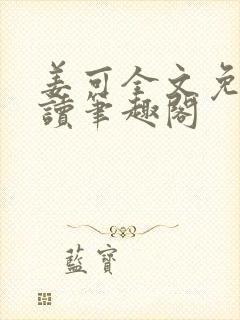 姜可全文免
讀筆趣閣
藍寶